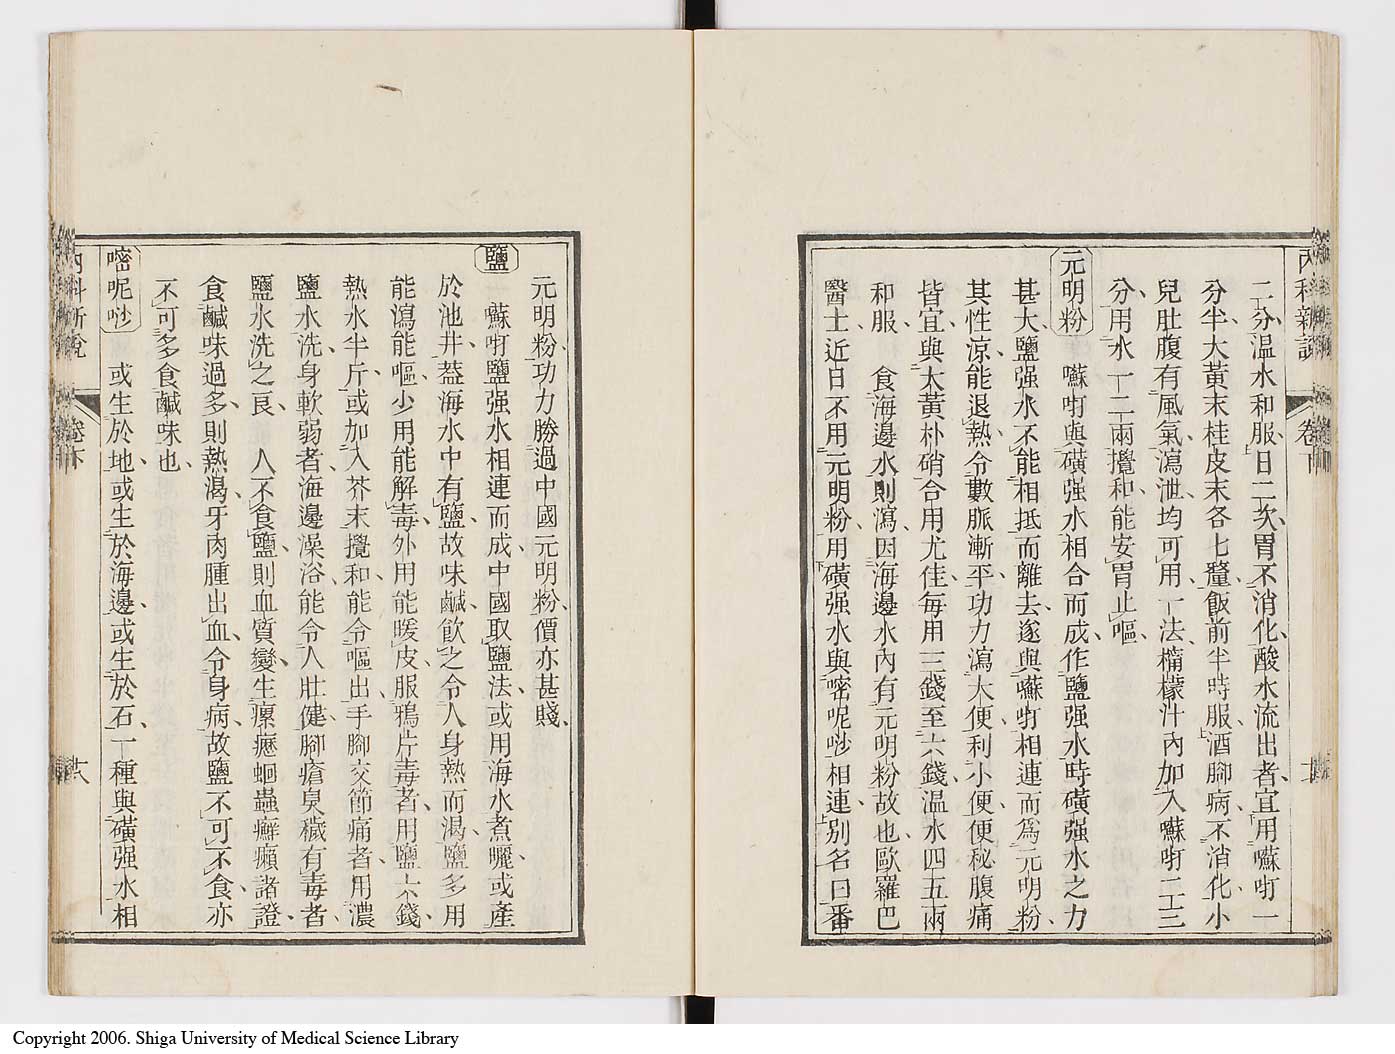 內科新說 卷下
二分溫水和服日二次胃不消化酸水流出者宜用囌吖一
分半大黃末桂皮末各七釐飯前半時服酒腳病不消化小
兒肚腹有風氣瀉泄均可用一法檸檬汁內加入囌吖二三
分用水一二兩攪和能安胃止嘔
元明粉 囌吖與磺强水相合而成作鹽强水時磺强水之力
甚大鹽强水不能相抵而離去遂與囌吖相連而爲元明粉
其性涼能退熱令數脈漸平功力瀉大便利小便便秘腹痛
皆宜與大黃朴硝合用尤佳每用三錢至六錢溫水四五兩
和服 食海邊水則瀉因海邊水內有元明粉故也歐羅巴
醫士近日不用元明粉用磺强水與嘧呢唦相連別名曰番
元明粉功力勝過中國元明粉價亦甚賤
鹽 囌吖鹽强水相連而成中國取鹽法或用海水煮曬或產
於池井葢海水中有鹽故味鹹飲之令人身熱而渴鹽多用
能瀉能嘔少用能解毒外用能暖皮服鴉片毒者用鹽六錢
熱水半斤或加入芥末攪和能令嘔出手腳交節痛者用濃
鹽水洗身軟弱者海邊澡浴能令人壯健腳瘡臭穢有毒者
鹽水洗之良 人不食鹽則血質變生瘰癧蛔蟲癬癩諸證
食鹹味過多則熱渴牙肉腫出血令身病故鹽不可不食亦
不可多食鹹味也
嘧呢唦 或生於地或生於海邊或生於石一種與磺强水相
內科新說 卷下